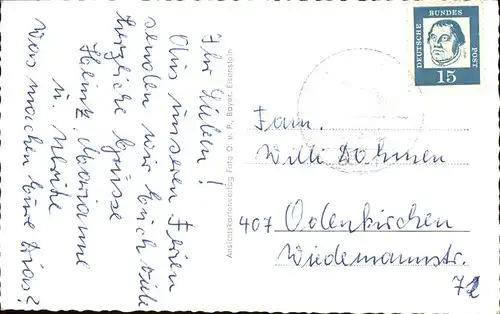 Ihr Lieben!
Aus unseren Ferien
senden wir Euch viele
herzliche Grüsse
Heinz, Marianne
u. Ulrike
Was machen Eure Dias?
Ansichtskartenverlag Foto O. u. P. Bayer. Eisenstein
DEUTSCHE
BUNDES
POST
15
Fam.
Willi Dohmen
407 Odenkirchen
Wiedemannstr.
72